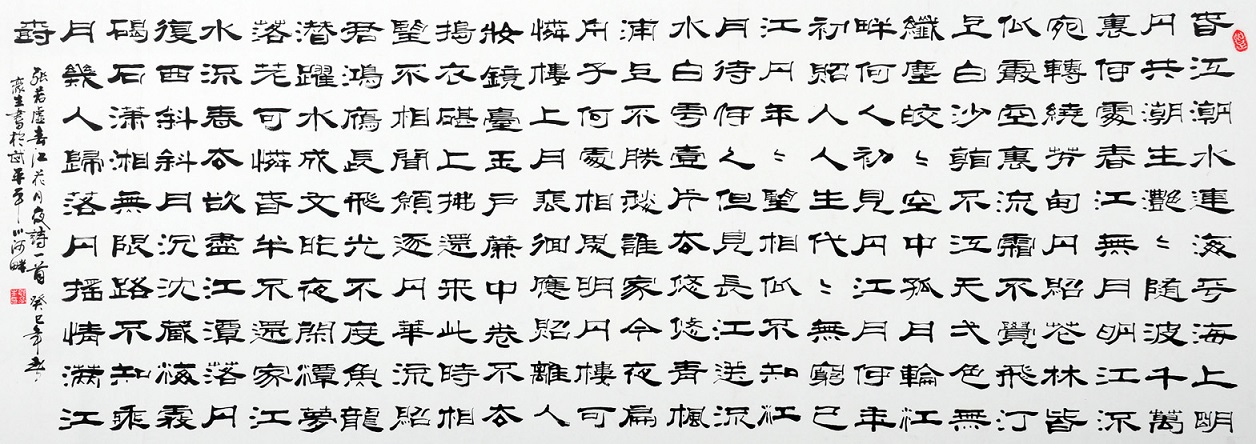 春江潮水連海平海上明
月共潮生灧々隨波千萬
裏何處春江無月明江流
宛轉繞芳甸月照花林皆
似霰空裏流霜不覺飛汀
上白沙看不江天弌色無
纖塵皎々空中孤月輪江
畔何人初見月江月何年
初照人人生代々無窮已
江月年々望相似不知江
月待何人但見長江送流
水白雲壹片去悠悠青楓
浦上不勝愁誰家今夜扁
舟子何處相思明月樓可
憐樓上月裴徊應照離人
妝鏡臺玉戶簾中卷不去
搗衣砧上拂還來此時相
望不相聞願逐月華流照
君鴻雁長飛光不度魚龍
潛躍水成文昨夜閑潭夢
落花可憐春半不還家江
水流春去欲盡江潭落月
復西斜斜月沉沉藏海霧
碣石瀟湘無限路不知乘
月幾人歸落月搖情滿江
樹
張若虛春江花月夜詩一首 癸巳年
生書於武平平川河畔